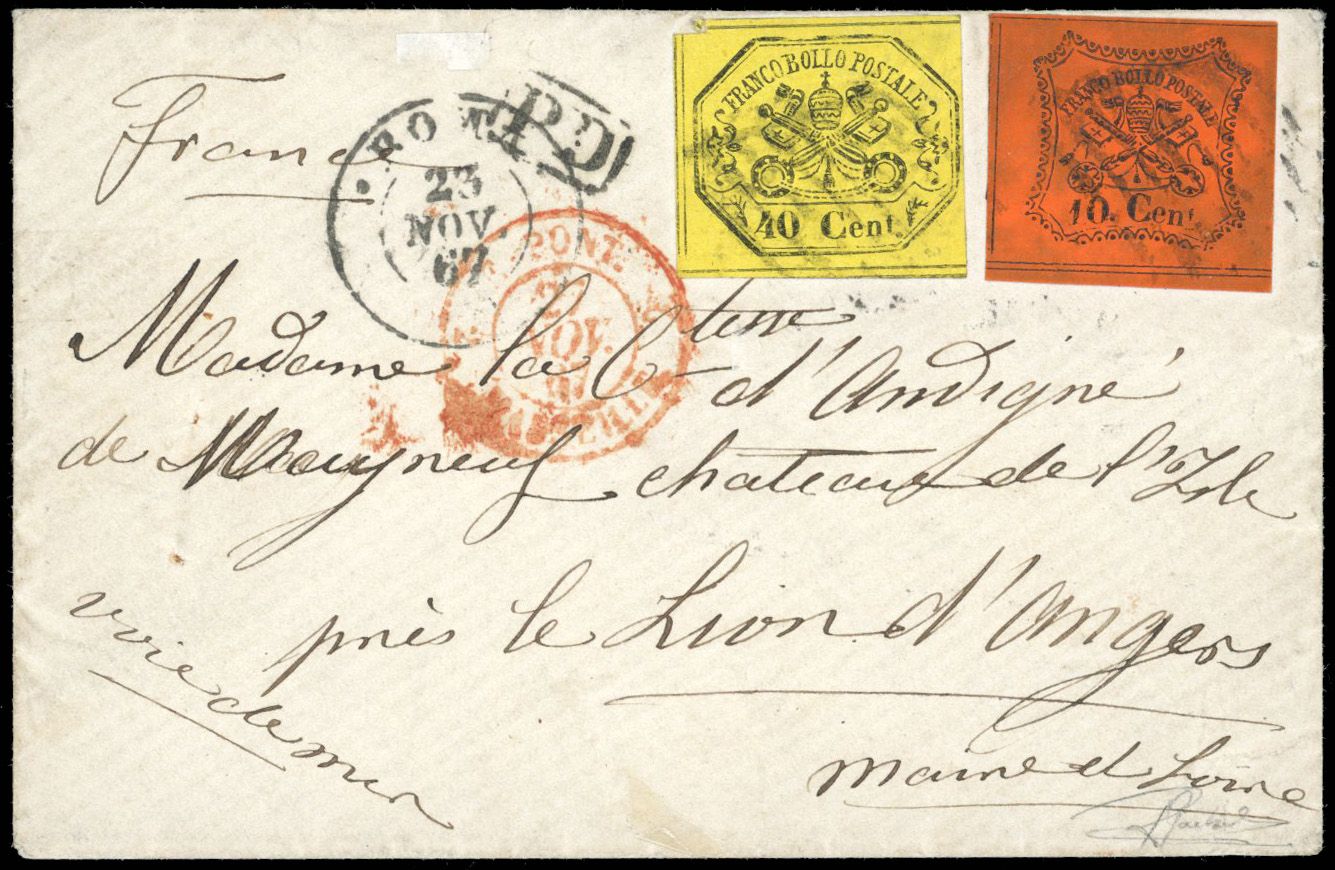 France
ROMA
23
NOV.
67
P.D
FRANCO BOLLO POSTALE
40 Cent
FRANCO BOLLO POSTALE
10. Cent.
PONT.
NOV.
Madame la Ctesse d'Andigné
de Mayneuf chateau de l'Isle
près le Lion d'Angers
voie de mer
Maine et Loire